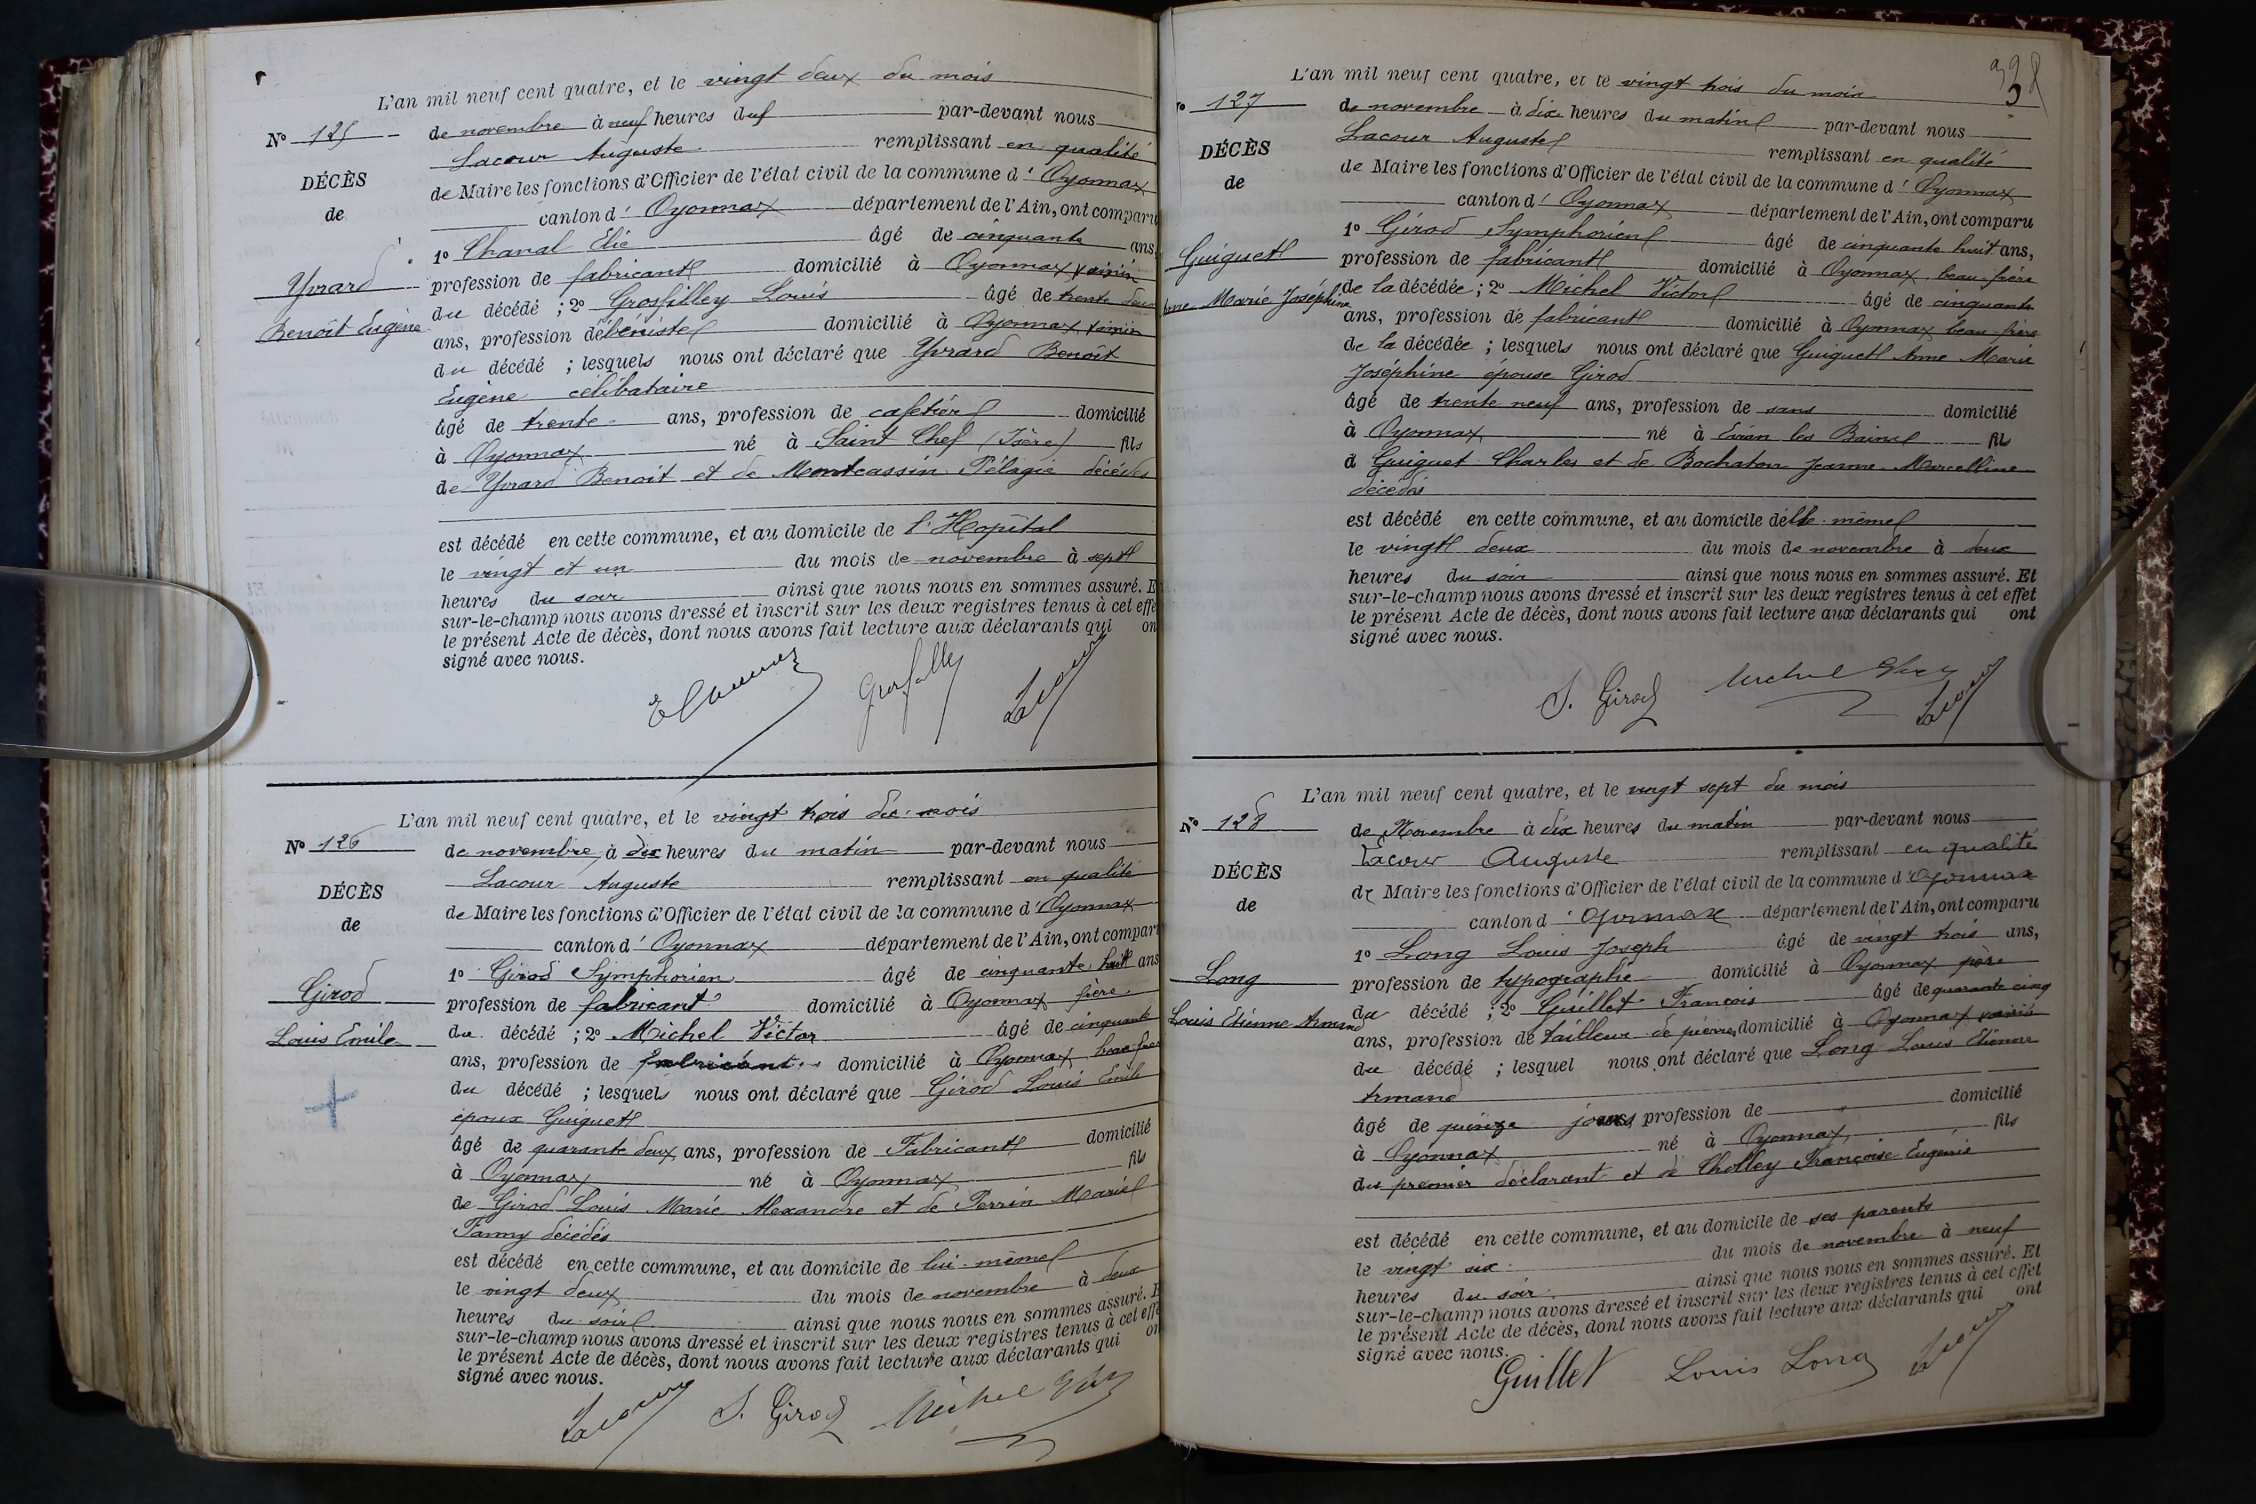 L'an mil neuf cent quatre, et le vingt deux du mois
No 125
de novembre à neuf heures du par-devant nous
Lacour Auguste remplissant en qualité
DÉCÈS
de Maire les fonctions d'Officier de l'état civil de la commune d' Oyonnax
de
canton d' Oyonnax département de l'Ain, ont comparu
1o Chanal Elie âgé de cinquante ans,
Yvrard
profession de fabricant domicilié à Oyonnax voisin
du décédé ; 2o Grosfilley Louis âgé de trente deux
Benoît Eugène
ans, profession d'ébéniste domicilié à Oyonnax voisin
du décédé ; lesquels nous ont déclaré que Yvrard Benoît
Eugène célibataire
âgé de trente ans, profession de cafetier domicilié
à Oyonnax né à Saint Chef (Isère) fils
de Yvrard Benoit et de Montcassin Pélagie décédés
est décédé en cette commune, et au domicile de l'Hopital
le vingt et un du mois de novembre à sept
heures du soir ainsi que nous nous en sommes assuré. E
sur-le-champ nous avons dressé et inscrit sur les deux registres tenus à cet effe
le présent Acte de décès, dont nous avons fait lecture aux déclarants qui on
signé avec nous.
Grosfilley Lacour
L'an mil neuf cent quatre, et le vingt trois du mois
No 126
de novembre à dix heures du matin par-devant nous
Lacour Auguste remplissant en qualité
DÉCÈS
de Maire les fonctions d'Officier de l'état civil de la commune d' Oyonnax
de
canton d' Oyonnax département de l'Ain, ont compar
1o Girod Symphorien âgé de cinquante huit ans
Girod
profession de fabricant domicilié à Oyonnax frère
du décédé ; 2o Michel Victor âgé de cinquante
Louis Emile
ans, profession de fabricant domicilié à Oyonnax beau frère
du décédé ; lesquels nous ont déclaré que Girod Louis Emile
époux Guiguet
âgé de quarante deux ans, profession de Fabricant domicilié
à Oyonnax né à Oyonnax fils
de Girod Louis Marie Alexandre et de Perrin Marie
Fanny décédés
est décédé en cette commune, et au domicile de lui-même
le vingt deux du mois de novembre à deux
heures du soir ainsi que nous nous en sommes assuré. E
sur-le-champ nous avons dressé et inscrit sur les deux registres tenus à cet effe
le présent Acte de décès, dont nous avons fait lecture aux déclarants qui on
signé avec nous.
Lacour S. Girod Michel Vic
338
L'an mil neuf cent quatre, et le vingt trois du mois
No 127
de novembre à dix heures du matin par-devant nous
Lacour Auguste remplissant en qualité
DÉCÈS
de Maire les fonctions d'Officier de l'état civil de la commune d' Oyonnax
de
canton d' Oyonnax département de l'Ain, ont comparu
1o Girod Symphorien âgé de cinquante huit ans,
Guiguet
profession de fabricant domicilié à Oyonnax beau-frère
Anne Marie Joséphine
de la décédée ; 2o Michel Victor âgé de cinquante
ans, profession de fabricant domicilié à Oyonnax beau-frère
de la décédée ; lesquels nous ont déclaré que Guiguet Anne Marie
Joséphine épouse Girod
âgé de trente neuf ans, profession de sans domicilié
à Oyonnax né à Evian les Bains fils
d Guiguet Charles et de Bochaton Jeanne Marcelline
décédés
est décédé en cette commune, et au domicile d'elle-même
le vingt deux du mois de novembre à deux
heures du soir ainsi que nous nous en sommes assuré. Et
sur-le-champ nous avons dressé et inscrit sur les deux registres tenus à cet effet
le présent Acte de décès, dont nous avons fait lecture aux déclarants qui ont
signé avec nous.
S. Girod Michel Vic Lacour
L'an mil neuf cent quatre, et le vingt sept du mois
No 128
de Novembre à dix heures du matin par-devant nous
Lacour Auguste remplissant en qualité
DÉCÈS
de Maire les fonctions d'Officier de l'état civil de la commune d' Oyonnax
de
canton d' Oyonnax département de l'Ain, ont comparu
1o Long Louis Joseph âgé de vingt trois ans,
Long
profession de typographe domicilié à Oyonnax père
Louis Etienne Armand
du décédé ; 2o Guillet François âgé de quarante cinq
ans, profession de tailleur de pierres domicilié à Oyonnax voisin
du décédé ; lesquel nous ont déclaré que Long Louis Etienne
Armand
âgé de quinze jours profession de domicilié
à Oyonnax né à Oyonnax fils
du premier déclarant et de Cholley Françoise Eugénie
est décédé en cette commune, et au domicile de ses parents
le vingt six du mois de novembre à neuf
heures du soir ainsi que nous nous en sommes assuré. Et
sur-le-champ nous avons dressé et inscrit sur les deux registres tenus à cet effet
le présent Acte de décès, dont nous avons fait lecture aux déclarants qui ont
signé avec nous.
Guillet Louis Long Lacour